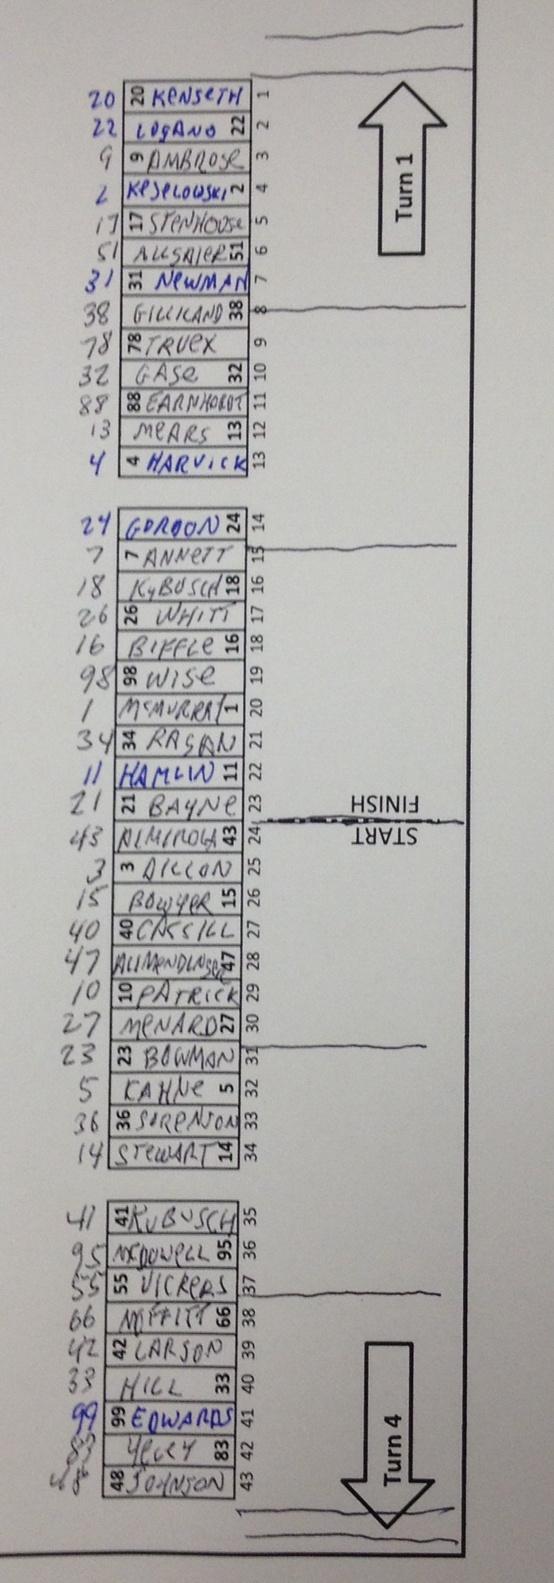 Turn 1
20 20 KENSETH 1
22 LOGANO 22 2
9 9 AMBROSE 3
2 KESELOWSKI 2 4
17 17 STENHOUSE 5
51 ALLGAIER 51 6
31 31 NEWMAN 7
38 GILLILAND 38 8
78 78 TRUEX 9
32 GASE 32 10
88 88 EARNHARDT 11
13 MEARS 13 12
4 4 HARVICK 13
24 GORDON 24 14
7 7 ANNETT 15
18 KyBUSCH 18 16
26 26 WHITT 17
16 BIFFLE 16 18
98 98 WISE 19
1 McMURRAY 1 20
34 34 RAGAN 21
11 HAMLIN 11 22
21 21 BAYNE 23
FINISH
START
43 ALMIROLA 43 24
3 3 DILLON 25
15 BOWYER 15 26
40 40 CASSILL 27
47 ALLMENDINGER 47 28
10 10 PATRICK 29
27 MENARD 27 30
23 23 BOWMAN 31
5 KAHNE 5 32
36 36 SORENSON 33
14 STEWART 14 34
41 41 KuBUSCH 35
95 McDOWELL 95 36
55 55 VICKERS 37
66 MOFFITT 66 38
42 42 LARSON 39
33 HILL 33 40
99 99 EDWARDS 41
83 83 42
48 48 JOHNSON 43
Turn 4